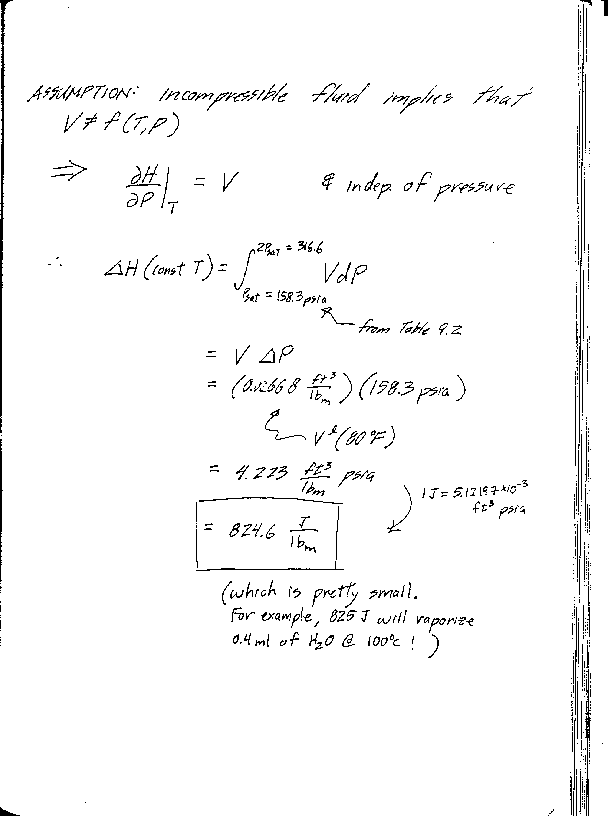 ASSUMPTION: incompressible fluid implies that
V ≠ f(T,P)
⇒ ∂H/∂P|T = V & indep. of pressure
∴ ΔH (const T) = ∫ Psat = 158.3 psia 2Psat = 316.6 V dP
from Table 9.2
= V ΔP
= (0.02668 ft³/lbm) (158.3 psia)
Vˡ (80°F)
= 4.223 ft³/lbm psia
1 J = 5.12197×10⁻³
ft³ psia
= 824.6 J/lbm
(which is pretty small.
For example, 825 J will vaporize
0.4 ml of H₂O @ 100°C ! )